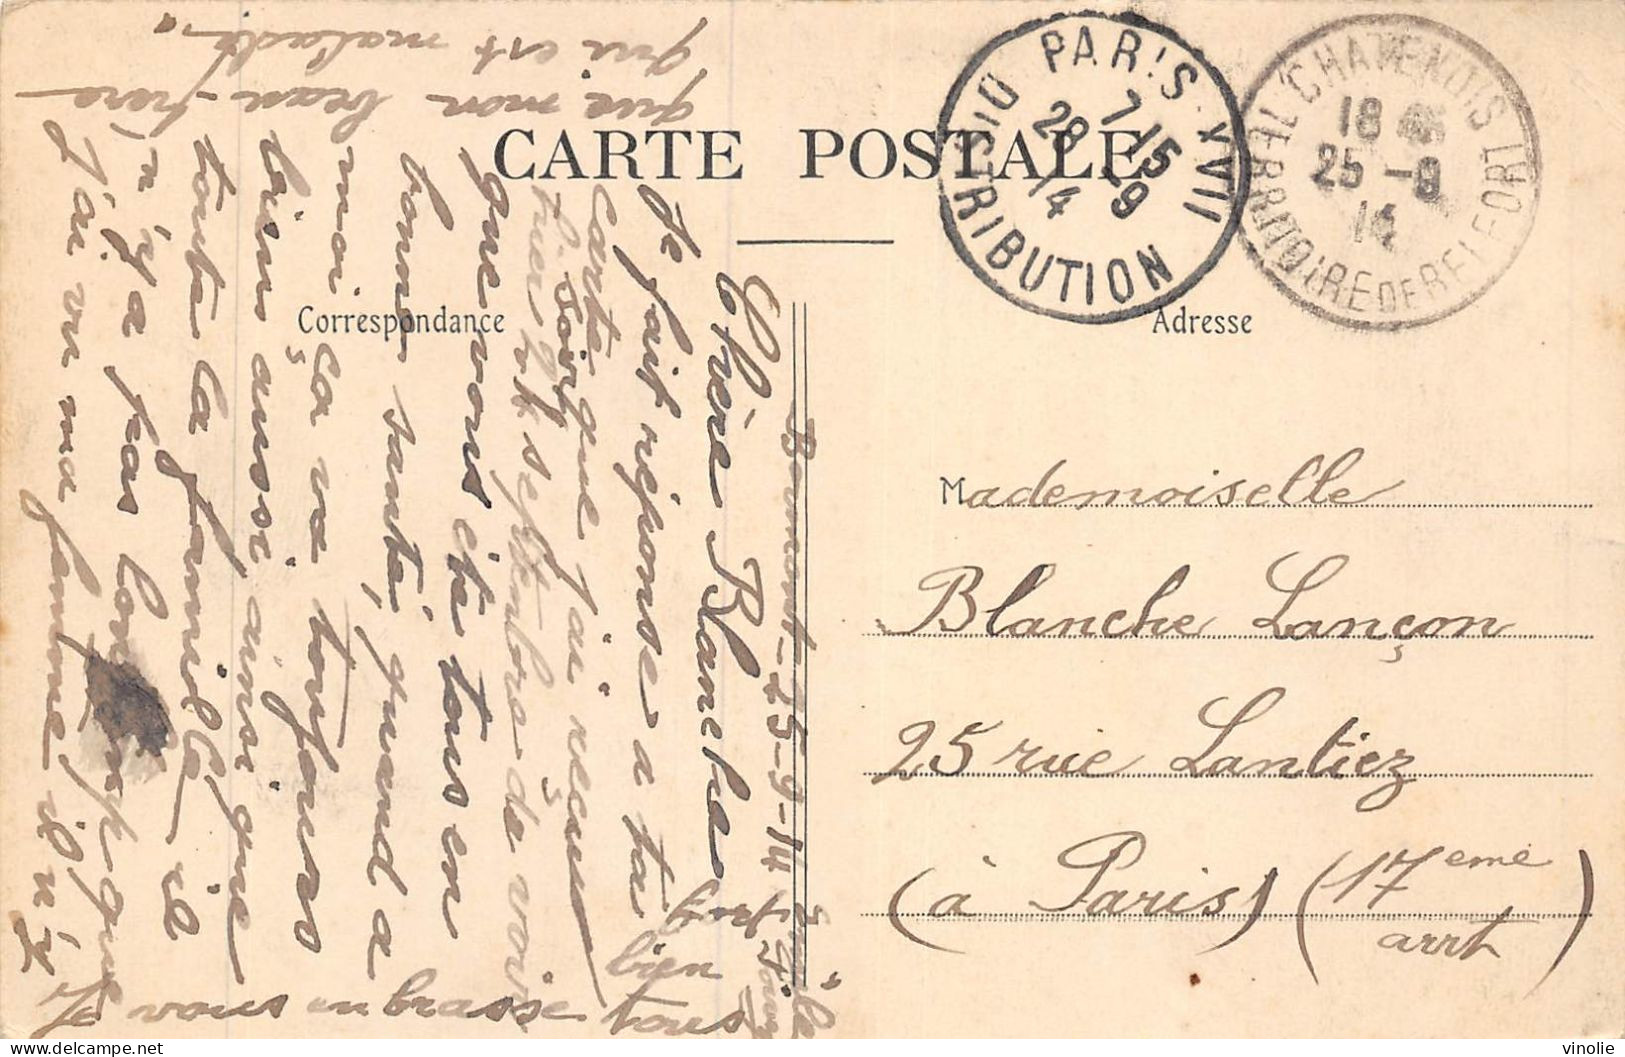 CARTE POSTALE
Correspondance
Adresse
PARIS XVII
7 15
28 -9
14
DISTRIBUTION
CHATENOIS
18
25 -9
14
TERRITOIRE DE BELFORT
25-9-14
Chère Blanche
Je fait réponse a ta
carte que j'ai reçue
hier soir
septembre de voir
que vous ête tous en
bonne santé, quand a
moi ça va toujours
bien aussi, ainsi que
toute la famille il
n'y a pas que
j'ai vu ma femme il n'y
que mon beau-frère
qui est malade.
Je vous embrasse tous
bien fort
Mademoiselle
Blanche Lançon
25 rue Lantiez
(à Paris) (17eme
arrt)
vinolie